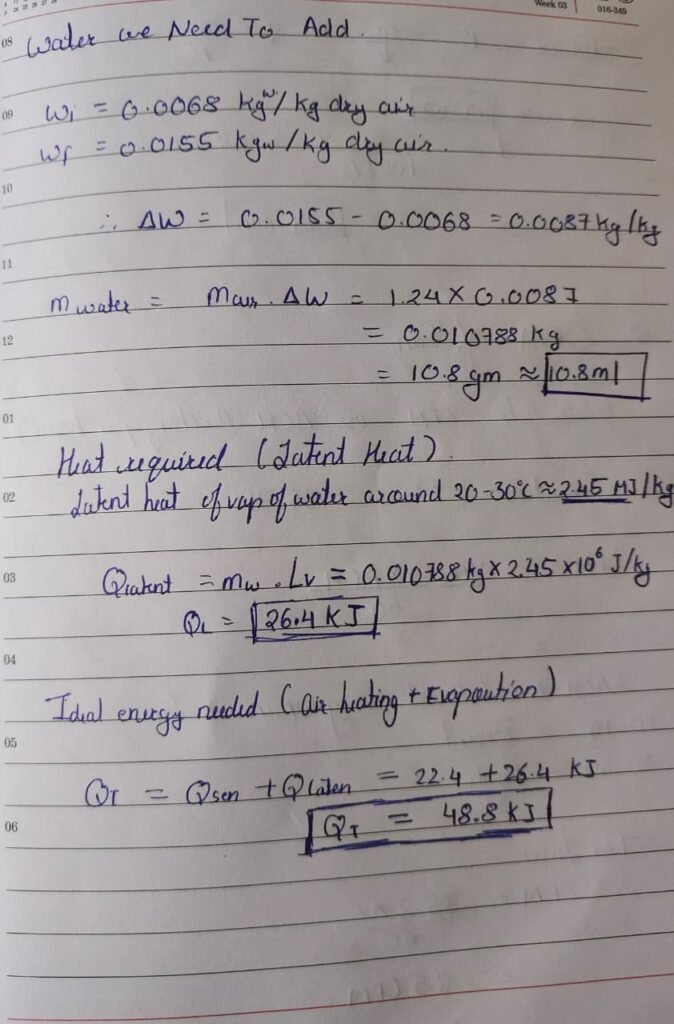 Week 03
016-349
08 Water we Need To Add.
09 Wi = 0.0068 kgw/kg dry air
Wf = 0.0155 kgw/kg dry air.
10
∴ ΔW = 0.0155 - 0.0068 = 0.0087 kg/kg
11
m water = Mair . ΔW = 1.24 X 0.0087
12 = 0.010788 kg
= 10.8 gm ≈ 10.8ml
01
Heat required (Latent Heat).
02 Latent heat of vap of water around 20-30°C ≈ 2.45 MJ/kg
03 Qlatent = mw . Lv = 0.010788 kg X 2.45 x10⁶ J/kg
QL = 26.4 KJ
04
Ideal energy needed (air heating + Evaporation)
05
QT = Qsen + Qlaten = 22.4 + 26.4 KJ
06 QT = 48.8 KJ